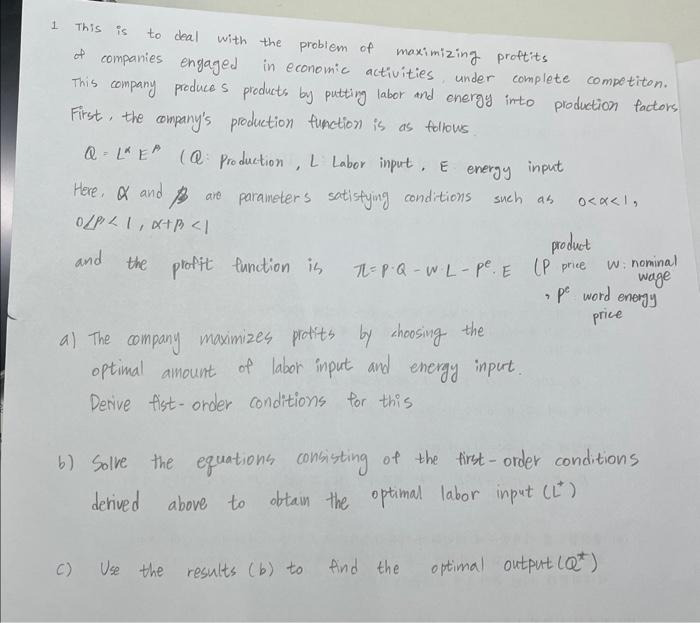 1 This is to deal with the problem of maximizing proftits
of companies engaged in economic activities, under complete competiton.
This company produces products by putting labor and energy into production factors
First, the company's production function is as follows.
Q = L^α E^β (Q: Production, L: Labor input, E energy input
Here, α and β are parameters satisfying conditions such as 0<α<1,
0<β<1, α+β<1
and the profit function is π = P·Q - W·L - P^e·E (P product price W: nominal wage
, P^e word energy price
a) The company maximizes profits by choosing the
optimal amount of labor input and energy input.
Derive fist-order conditions for this
b) Solve the equations consisting of the first-order conditions
derived above to obtain the optimal labor input (L*)
c) Use the results (b) to find the optimal output (Q*)